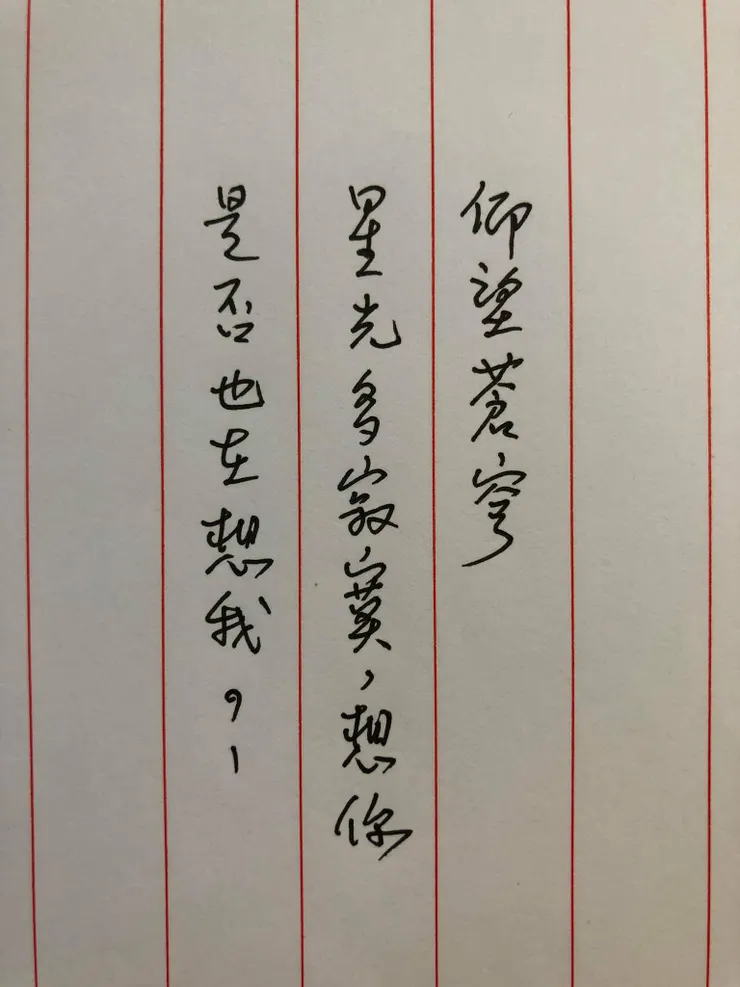 仰望苍穹
星光多寂寞,想你
是否也在想我。一